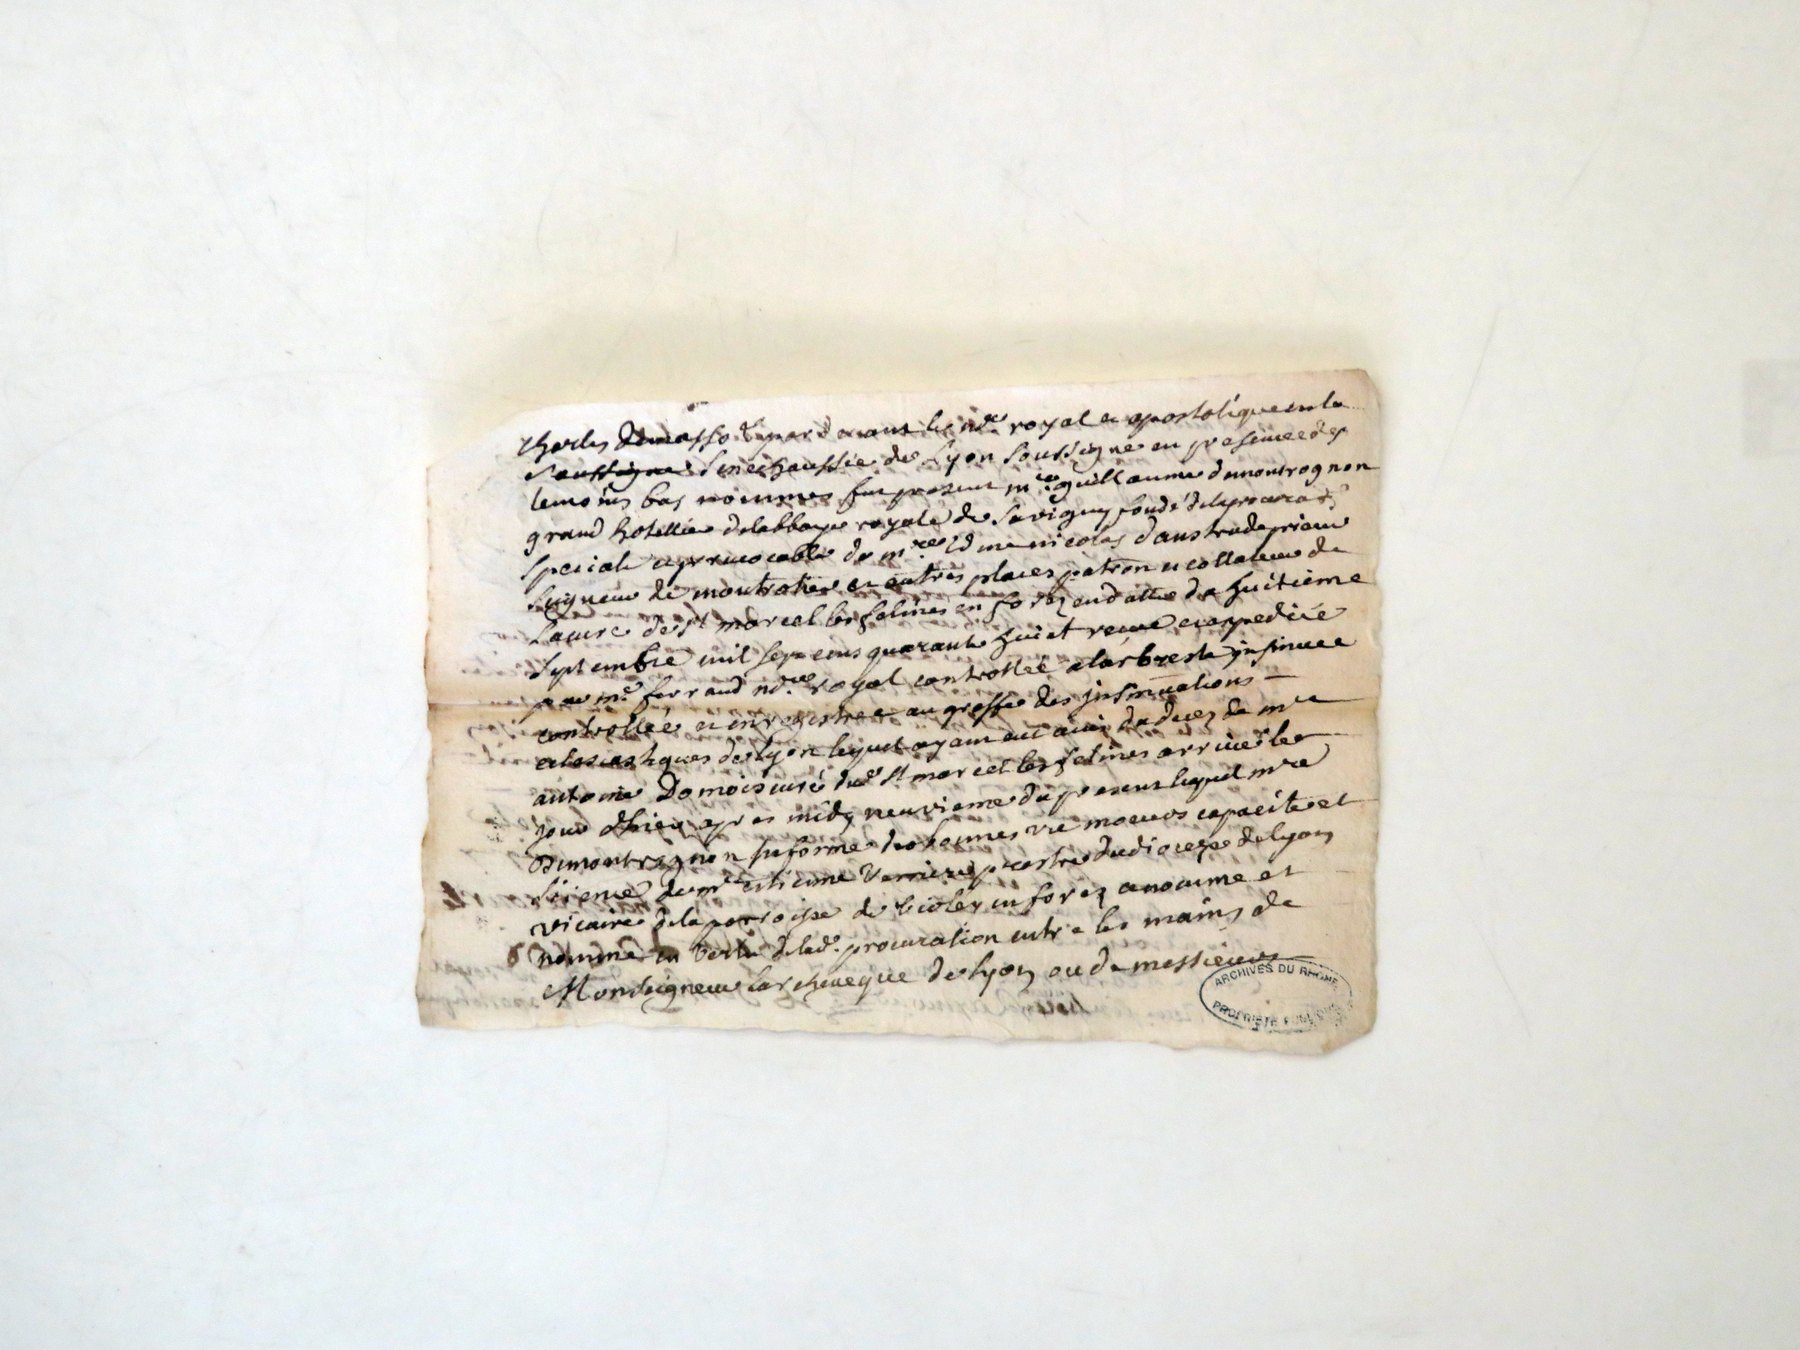 charles demasso & pardevant le no.re royal et apostolique en la
soussigné senechaussée de Lyon soussigné en presence des
temoins bas nommes fut present m.re guillaume demontrognon
grand hotellier delabbaye royale de Savigny fondé de procura.on
speciale et revocable de m.re edme nicolas daustrude prieur
seigneur de montrotier et autres places patron et collateur de
lacure de st marcel les felines en forez en datte du huitieme
septembre mil sept cens quarante huit receue et expediée
par m.e ferrand no.re royal controllée a larbresle insinuée
controllée et enregistrée au greffe des insinuations
eclesiastiques de lyon lequel ayant eut avis du deces de m.re
antoine Damois curé dud. st marcel les felines arrivé le
jour dhier apres midy neuvieme du present lequel m.re
Demontrognon informé des bonnes vie moeurs capacité et
science de m.re estienne Verriere prestre du diocese de lyon
vicaire de la parroisse de en forez a nommé et
nomme en vertu de lad. procuration entre les mains de
Monseigneur larcheveque de lyon ou de messieurs
ARCHIVES DU RHÔNE
PROPRIÉTÉ PUBLIQUE